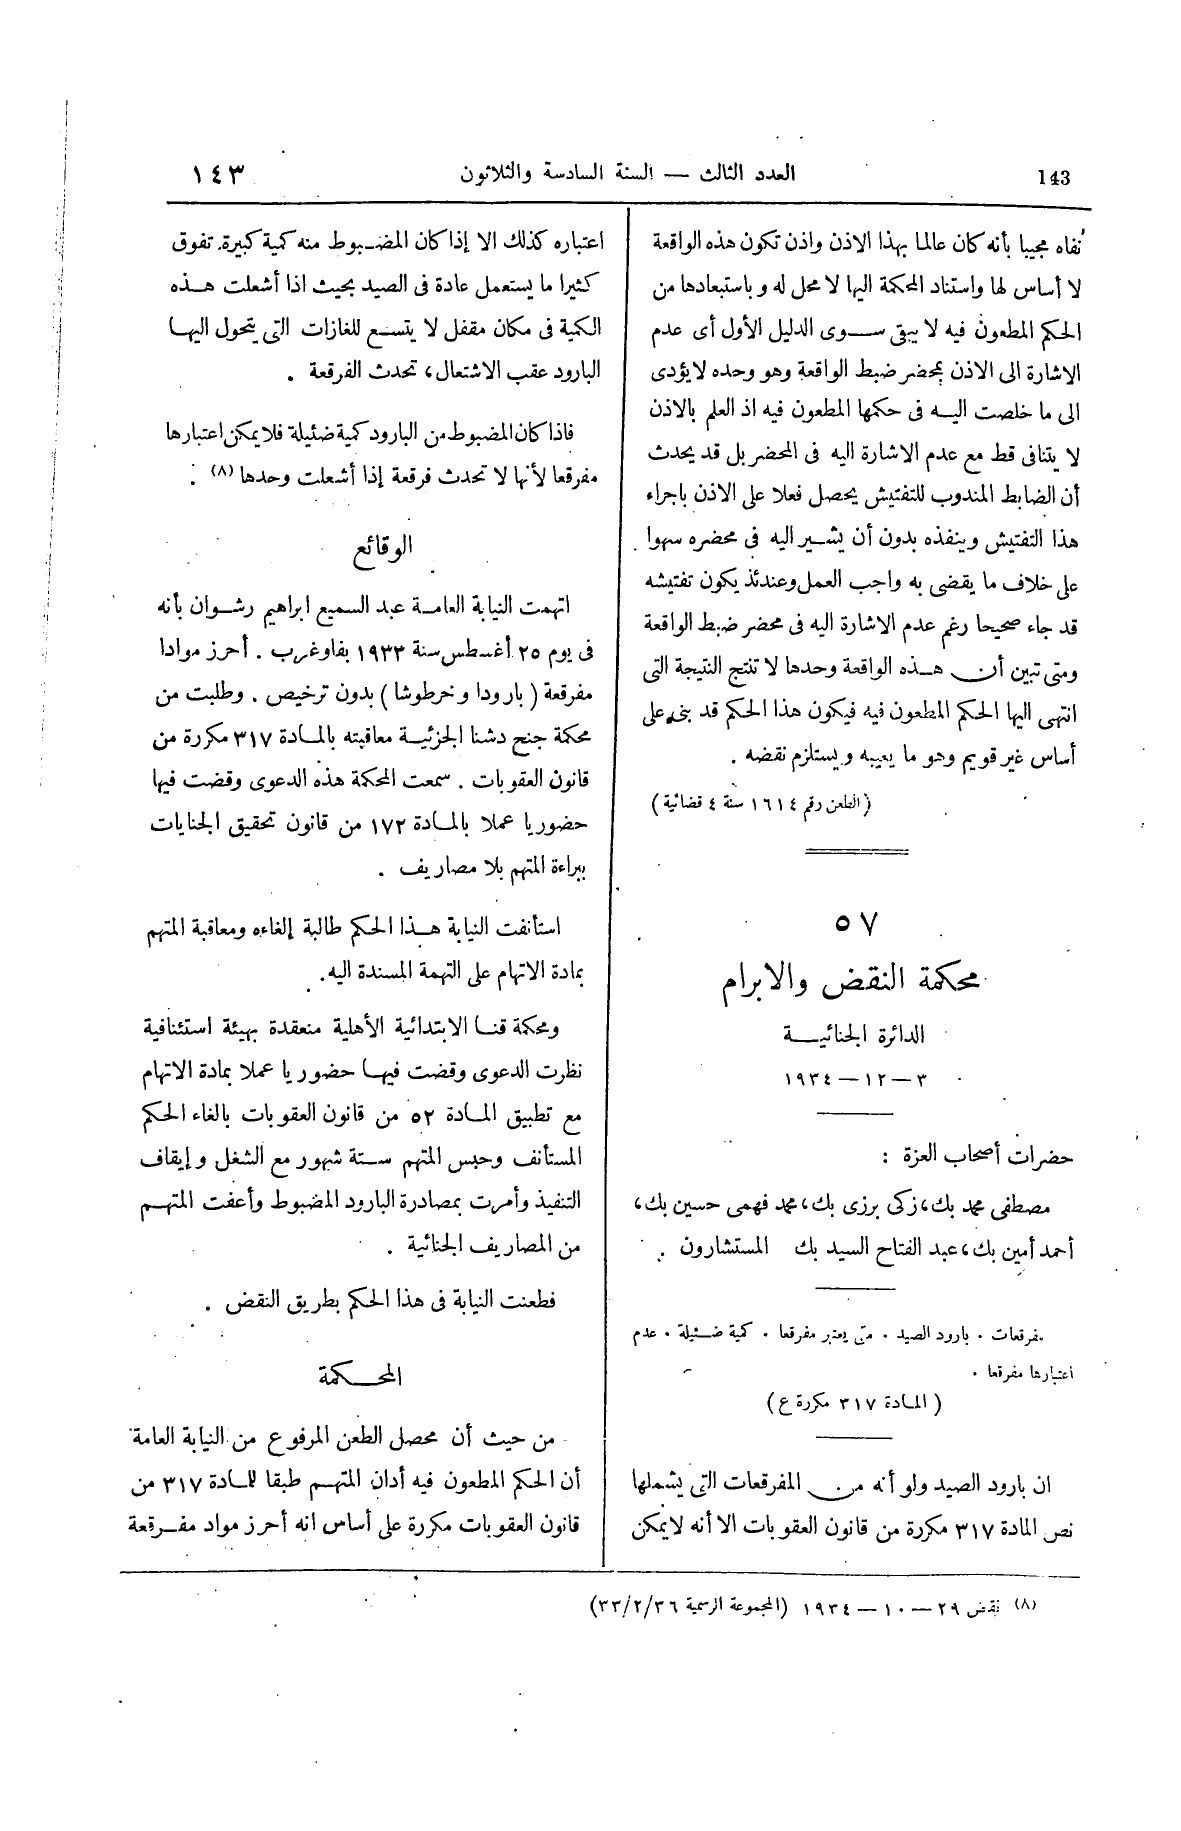 143
العدد الثالث — السنة السادسة والثلاثون
١٤٣
نفاه مجيبا بأنه كان عالما بهذا الاذن واذن تكون هذه الواقعة
لا أساس لها واستناد المحكمة اليها لا محل له وباستبعادها من
الحكم المطعون فيه لا يبقى سوى الدليل الأول أى عدم
الاشارة الى الاذن بمحضر ضبط الواقعة وهو وحده لا يؤدى
الى ما خلصت اليه فى حكمها المطعون فيه اذ العلم بالاذن
لا يتنافى قط مع عدم الاشارة اليه فى المحضر بل قد يحدث
أن الضابط المندوب للتفتيش يحصل فعلا على الاذن باجراء
هذا التفتيش وينفذه بدون أن يشير اليه فى محضره سهوا
على خلاف ما يقضى به واجب العمل وعندئذ يكون تفتيشه
قد جاء صحيحا رغم عدم الاشارة اليه فى محضر ضبط الواقعة
ومتى تبين أن هذه الواقعة وحدها لا تنتج النتيجة التى
انتهى اليها الحكم المطعون فيه فيكون هذا الحكم قد بنى على
أساس غير قويم وهو ما يعيبه ويستلزم نقضه .
( الطعن رقم ١٦١٤ سنة ٤ قضائية )
٥٧
محكمة النقض والابرام
الدائرة الجنائية
٣ — ١٢ — ١٩٣٤
حضرات أصحاب العزة :
مصطفى محمد بك، زكى برزى بك، محمد فهمى حسين بك،
أحمد أمين بك، عبد الفتاح السيد بك المستشارون .
مفرقعات . بارود الصيد . متى يعتبر مفرقعا . كمية ضئيلة . عدم
اعتبارها مفرقعا .
( المادة ٣١٧ مكررة ع )
ان بارود الصيد ولو أنه من المفرقعات التى يشملها
نص المادة ٣١٧ مكررة من قانون العقوبات الا أنه لا يمكن
اعتباره كذلك الا إذا كان المضبوط منه كمية كبيرة تفوق
كثيرا ما يستعمل عادة فى الصيد بحيث اذا أشعلت هذه
الكمية فى مكان مقفل لا يتسع للغازات التى يتحول اليها
البارود عقب الاشتعال، تحدث الفرقعة .
فاذا كان المضبوط من البارود كمية ضئيلة فلا يمكن اعتبارها
مفرقعا لأنها لا تحدث فرقعة إذا أشعلت وحدها (٨) .
الوقائع
اتهمت النيابة العامة عبد السميع ابراهيم رشوان بأنه
فى يوم ٢٥ أغسطس سنة ١٩٣٣ بفاوغرب . أحرز موادا
مفرقعة ( بارودا وخرطوشا ) بدون ترخيص . وطلبت من
محكمة جنح دشنا الجزئية معاقبته بالمادة ٣١٧ مكررة من
قانون العقوبات . سمعت المحكمة هذه الدعوى وقضت فيها
حضوريا عملا بالمادة ١٧٢ من قانون تحقيق الجنايات
ببراءة المتهم بلا مصاريف .
استأنفت النيابة هذا الحكم طالبة إلغاءه ومعاقبة المتهم
بمادة الاتهام على التهمة المسندة اليه .
ومحكمة قنا الابتدائية الأهلية منعقدة بهيئة استئنافية
نظرت الدعوى وقضت فيها حضوريا عملا بمادة الاتهام
مع تطبيق المادة ٥٢ من قانون العقوبات بالغاء الحكم
المستأنف وحبس المتهم ستة شهور مع الشغل وإيقاف
التنفيذ وأمرت بمصادرة البارود المضبوط وأعفت المتهم
من المصاريف الجنائية .
فطعنت النيابة فى هذا الحكم بطريق النقض .
المحكمة
من حيث أن محصل الطعن المرفوع من النيابة العامة
أن الحكم المطعون فيه أدان المتهم طبقا للمادة ٣١٧ من
قانون العقوبات مكررة على أساس انه أحرز مواد مفرقعة
(٨) نقض ٢٩ — ١٠ — ١٩٣٤ (المجموعة الرسمية ٣٦/٢/٣٣)